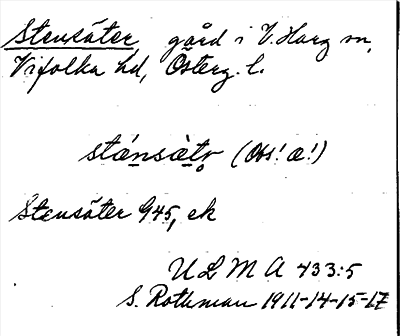 Stensäter gård i V. Harg sn,
Vifolka hd, Österg. l.
stánsàtr (Obs! a!)
Stensäter G45, ek
ULMA 433:5
S. Rothman 1911-14-15-17